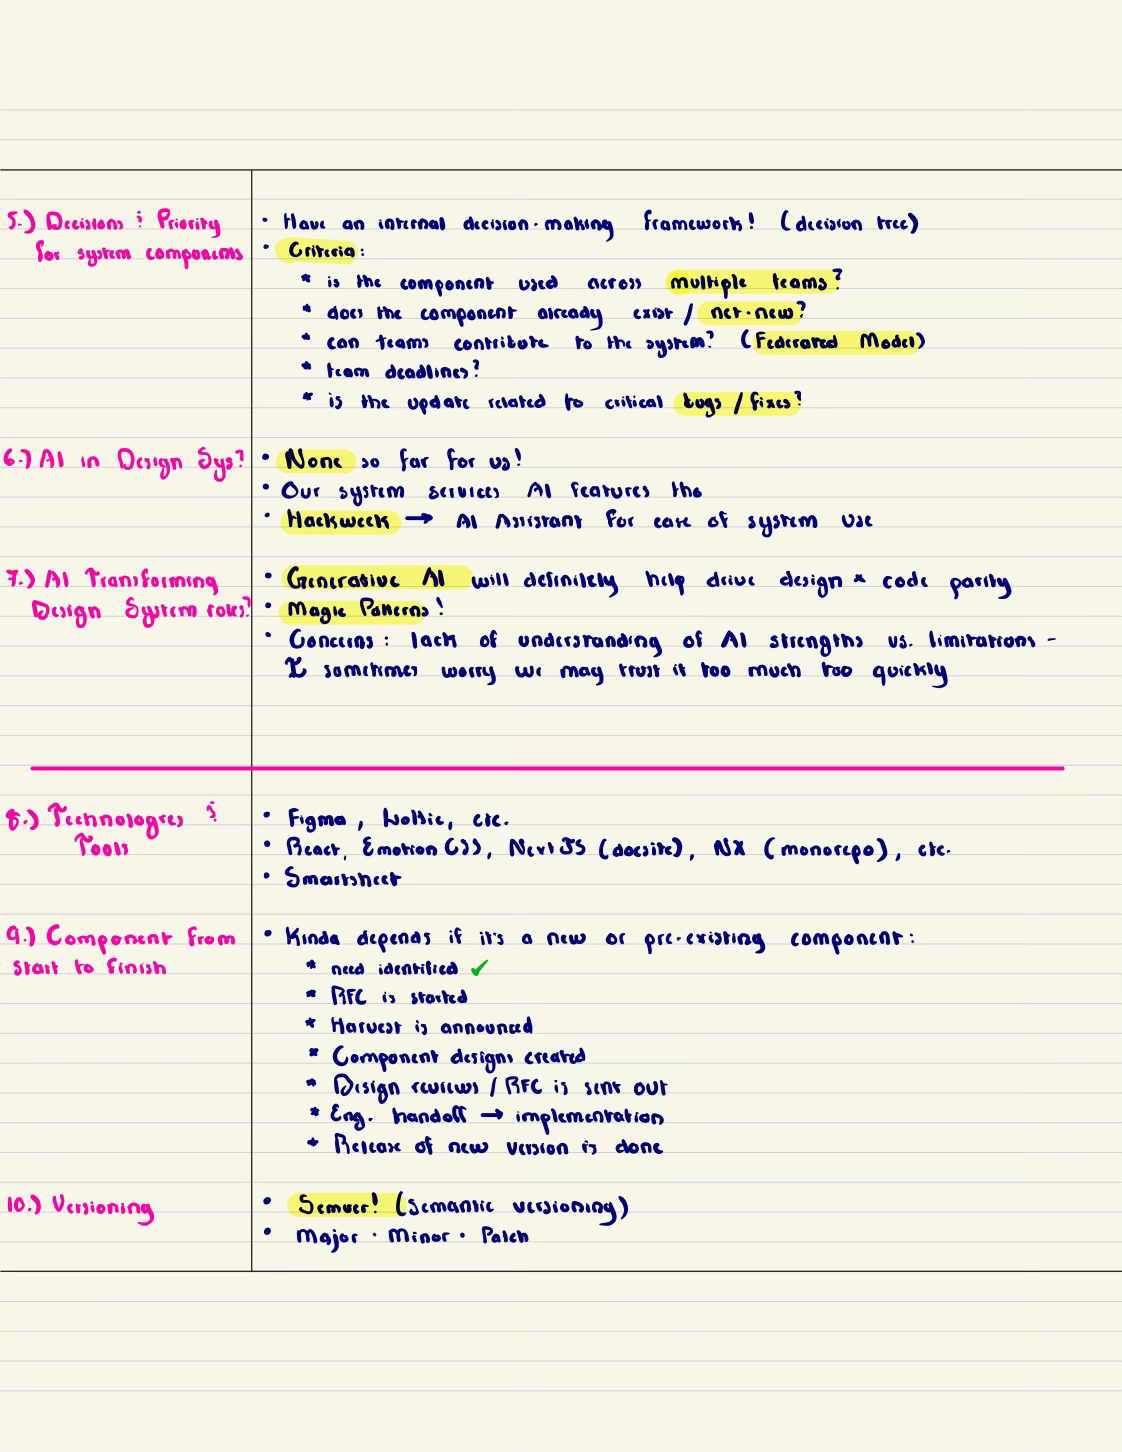 5.) Decisions & Priority
for system components
• Have an internal decision-making framework! (decision tree)
• Criteria:
* is the component used across multiple teams?
* does the component already exist / net-new?
* can teams contribute to the system? (Federated Model)
* team deadlines?
* is the update related to critical bugs / fixes?
6.) AI in Design Sys?
• None so far for us!
• Our system services AI features tho
• Hackweek → AI Assistant for ease of system use
7.) AI Transforming
Design System roles?
• Generative AI will definitely help drive design * code parity
• Magic Patterns!
• Concerns: lack of understanding of AI strengths vs. limitations -
I sometimes worry we may trust it too much too quickly
8.) Technologies &
Tools
• Figma, Lottie, etc.
• React, Emotion CSS, NextJS (docsite), NX (monorepo), etc.
• Smartsheet
9.) Component from
start to finish
• Kinda depends if it's a new or pre-existing component:
* need identified ✓
* RFC is started
* Harvest is announced
* Component designs created
* Design reviews / RFC is sent out
* Eng. handoff → implementation
* Release of new version is done
10.) Versioning
• Semver! (Semantic versioning)
• Major · Minor · Patch